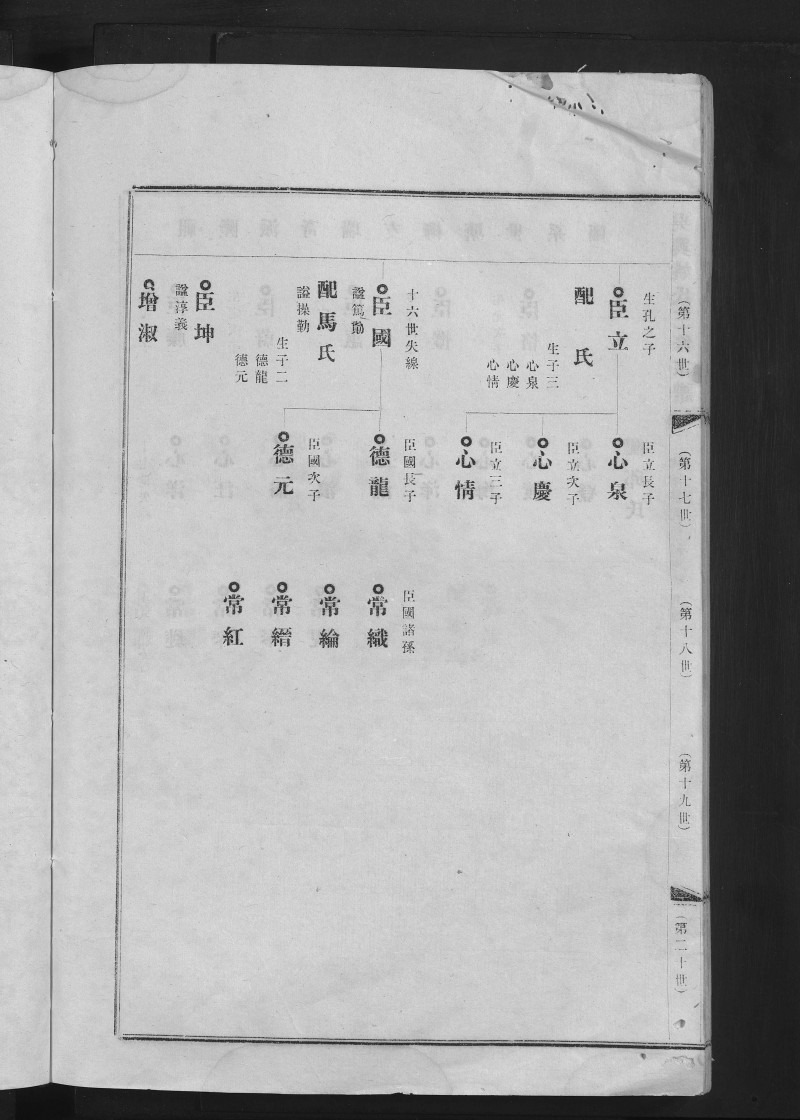 (第十六世)
生孔之子
臣立
配 氏
生子三
心泉
心慶
心情
十六世失線
臣國
諡篤勤
配馬氏
諡操勤
生子二
德龍
德元
臣坤
諡淳義
增淑
(第十七世)
臣立長子
心泉
臣立次子
心慶
臣立三子
心情
臣國長子
德龍
臣國次子
德元
(第十八世)
臣國諸孫
常織
常綸
常縉
常紅
(第十九世)
(第二十世)